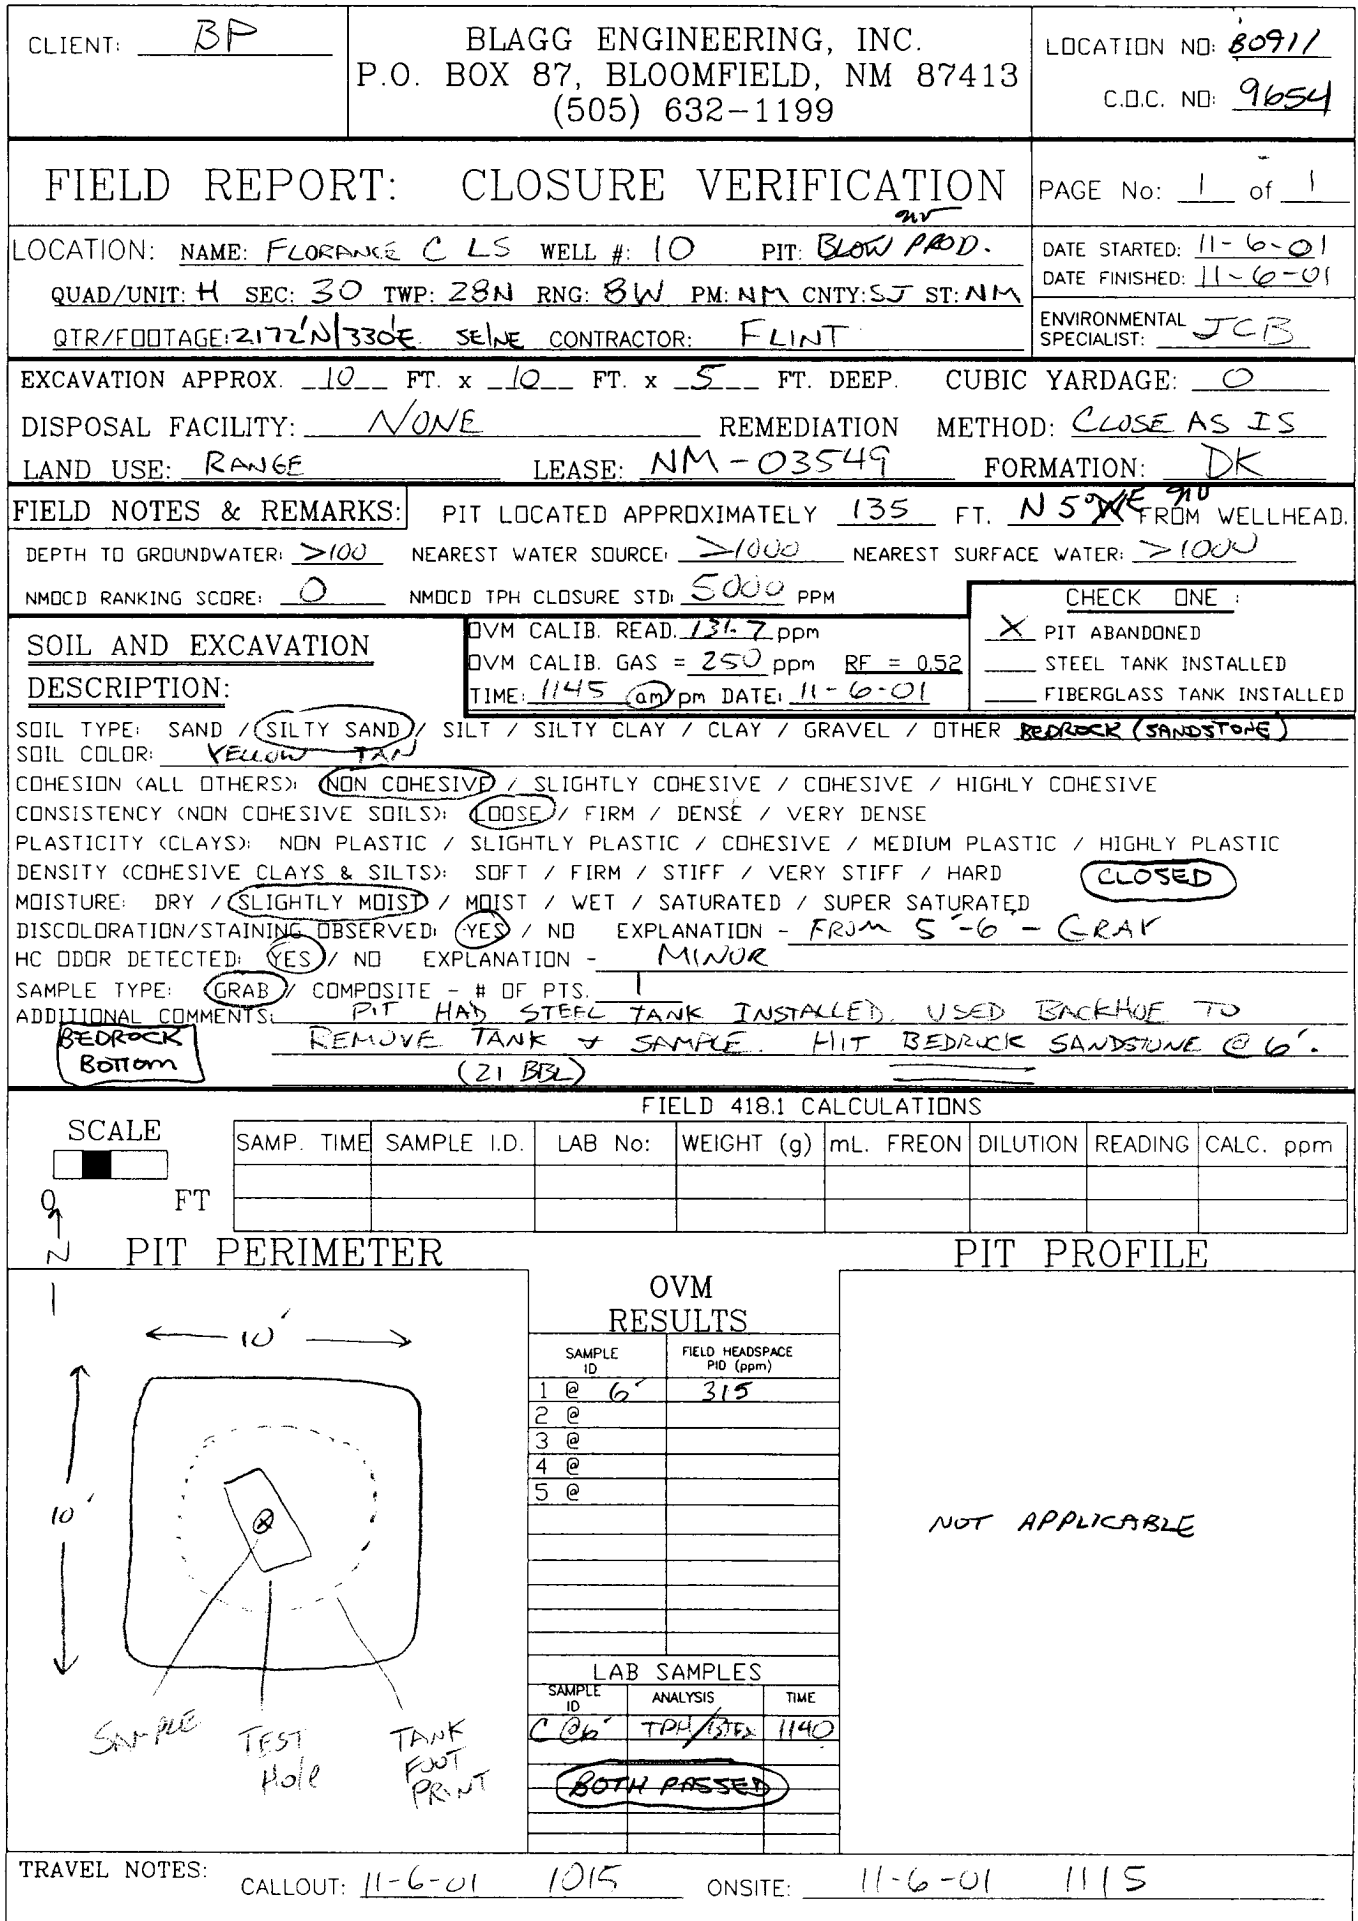 CLIENT: BP
BLAGG ENGINEERING, INC.
P.O. BOX 87, BLOOMFIELD, NM 87413
(505) 632-1199
LOCATION NO: B0911
C.O.C. NO: 9654
FIELD REPORT: CLOSURE VERIFICATION
PAGE No: 1 of 1
LOCATION: NAME: FLORANCE C LS WELL #: 10 PIT: BLOW PROD.
DATE STARTED: 11-6-01
DATE FINISHED: 11-6-01
QUAD/UNIT: H SEC: 30 TWP: 28N RNG: 8W PM: NM CNTY: SJ ST: NM
QTR/FOOTAGE: 2172'N/330'E SE/NE CONTRACTOR: FLINT
ENVIRONMENTAL SPECIALIST: JCB
EXCAVATION APPROX. 10 FT. x 10 FT. x 5 FT. DEEP. CUBIC YARDAGE: 0
DISPOSAL FACILITY: NONE REMEDIATION METHOD: CLOSE AS IS
LAND USE: RANGE LEASE: NM-03549 FORMATION: DK
FIELD NOTES & REMARKS: PIT LOCATED APPROXIMATELY 135 FT. N 5° E FROM WELLHEAD.
DEPTH TO GROUNDWATER: >100 NEAREST WATER SOURCE: >1000 NEAREST SURFACE WATER: >1000
NMOCD RANKING SCORE: 0 NMOCD TPH CLOSURE STD: 5000 PPM
CHECK ONE :
X PIT ABANDONED
STEEL TANK INSTALLED
FIBERGLASS TANK INSTALLED
SOIL AND EXCAVATION
DESCRIPTION:
OVM CALIB. READ. 131.7 ppm
OVM CALIB. GAS = 250 ppm RF = 0.52
TIME: 1145 am/pm DATE: 11-6-01
SOIL TYPE: SAND / SILTY SAND / SILT / SILTY CLAY / CLAY / GRAVEL / OTHER BEDROCK (SANDSTONE)
SOIL COLOR: YELLOW TAN
COHESION (ALL OTHERS): NON COHESIVE / SLIGHTLY COHESIVE / COHESIVE / HIGHLY COHESIVE
CONSISTENCY (NON COHESIVE SOILS): LOOSE / FIRM / DENSE / VERY DENSE
PLASTICITY (CLAYS): NON PLASTIC / SLIGHTLY PLASTIC / COHESIVE / MEDIUM PLASTIC / HIGHLY PLASTIC
DENSITY (COHESIVE CLAYS & SILTS): SOFT / FIRM / STIFF / VERY STIFF / HARD
CLOSED
MOISTURE: DRY / SLIGHTLY MOIST / MOIST / WET / SATURATED / SUPER SATURATED
DISCOLORATION/STAINING OBSERVED: YES / NO EXPLANATION - FROM 5'-6' - GRAY
HC ODOR DETECTED: YES / NO EXPLANATION - MINOR
SAMPLE TYPE: GRAB / COMPOSITE - # OF PTS. 1
ADDITIONAL COMMENTS: PIT HAD STEEL TANK INSTALLED. USED BACKHOE TO
REMOVE TANK & SAMPLE. HIT BEDROCK SANDSTONE @ 6'.
(21 BBL)
BEDROCK
BOTTOM
SCALE
0 FT
N
FIELD 418.1 CALCULATIONS
SAMP. TIME SAMPLE I.D. LAB No: WEIGHT (g) mL. FREON DILUTION READING CALC. ppm
PIT PERIMETER
PIT PROFILE
10'
10'
SAMPLE
TEST
Hole
TANK
FOOT
PRINT
OVM
RESULTS
SAMPLE ID FIELD HEADSPACE PID (ppm)
1 @ 6' 315
2 @
3 @
4 @
5 @
LAB SAMPLES
SAMPLE ID ANALYSIS TIME
C @ 6' TPH/BTEX 1140
BOTH PASSED
NOT APPLICABLE
TRAVEL NOTES: CALLOUT: 11-6-01 1015 ONSITE: 11-6-01 1115